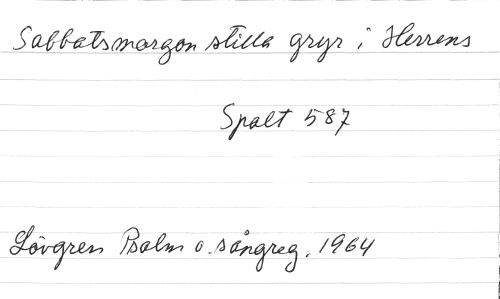 Sabbatsmorgon stilla gryr i Herrens
Spalt 587
Lövgren Psalm o. sångreg. 1964